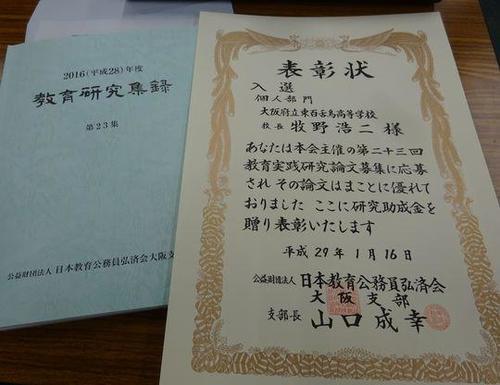 2016(平成28)年度
教育研究集録
第23集
公益財団法人 日本教育公務員弘済会大阪支
表彰状
入選
個人部門
大阪府立東百舌鳥高等学校
校長 牧野浩二様
あなたは本会主催の第二十三回
教育実践研究論文募集に応募
され その論文はまことに優れて
おりました ここに研究助成金を
贈り表彰いたします
平成29年1月16日
公益財団法人 日本教育公務員弘済会
大阪支部
支部長 山口成幸